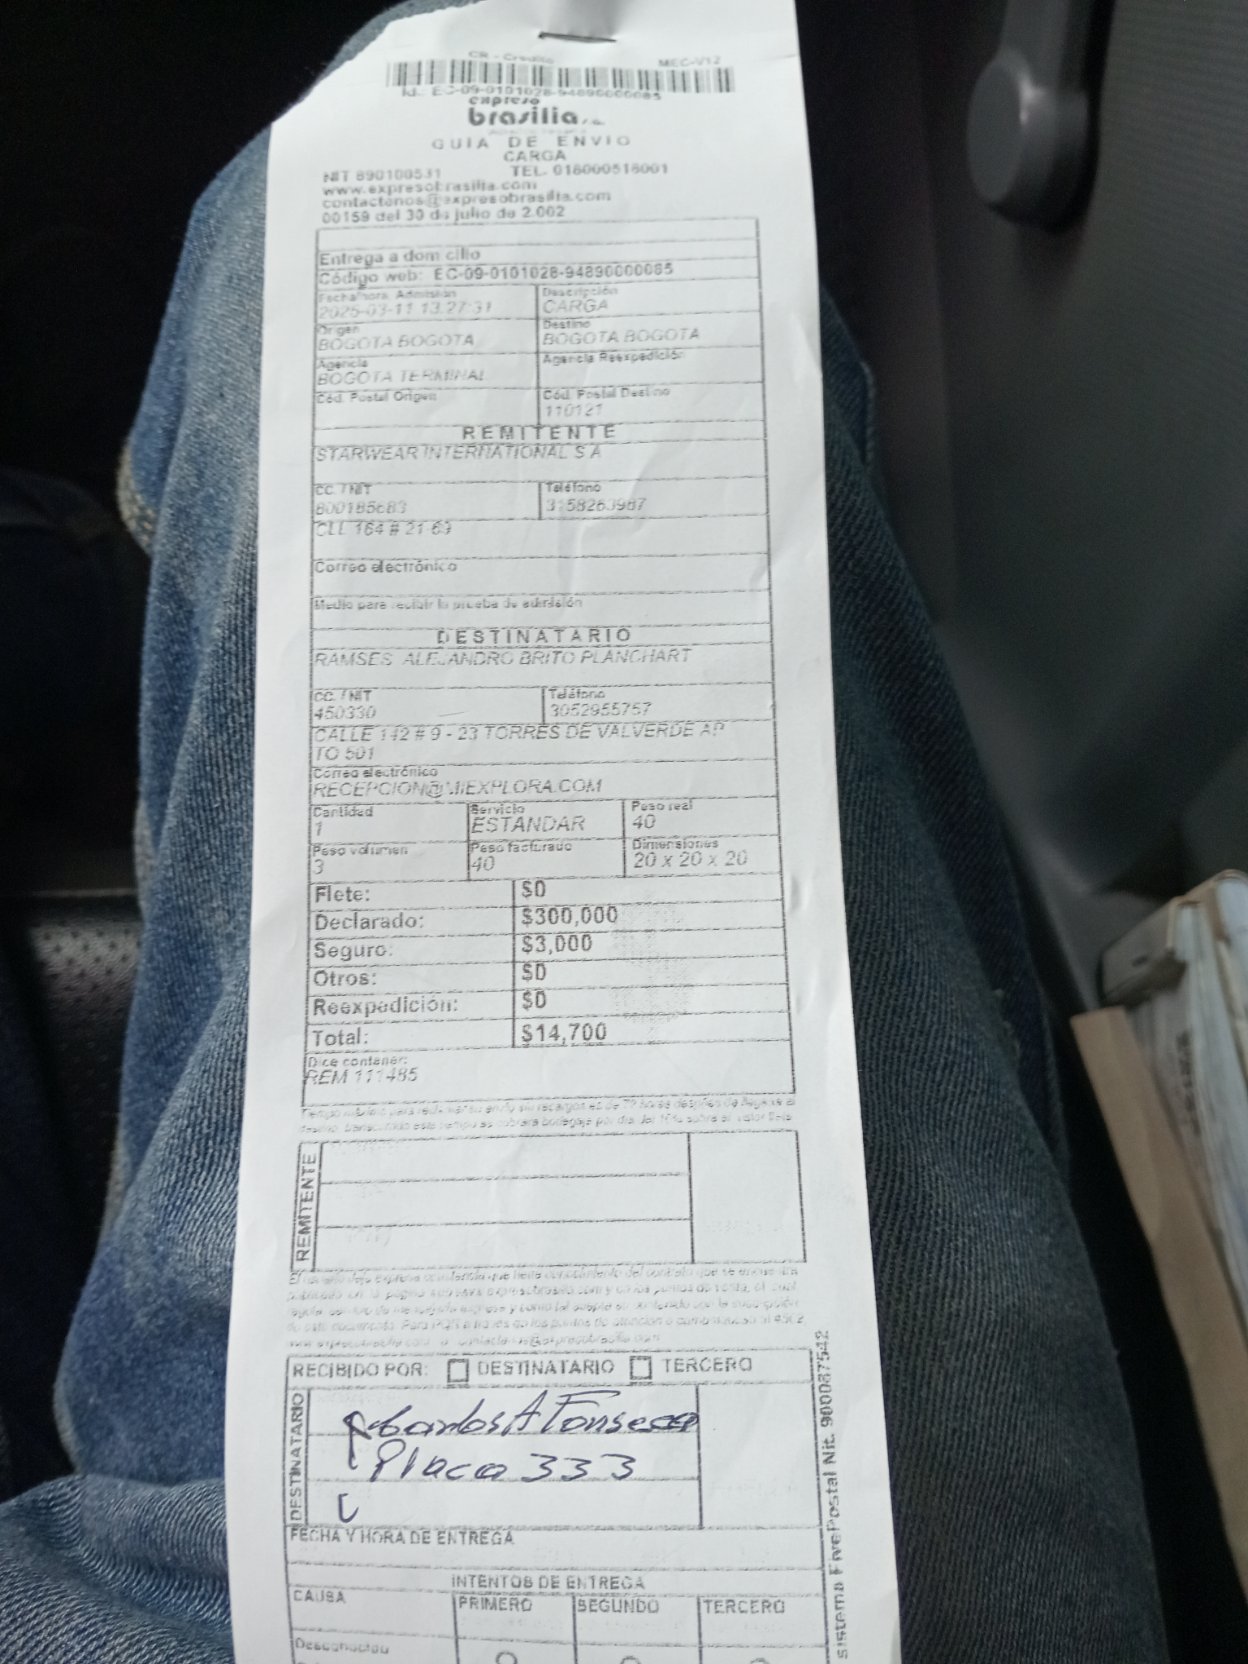 CR - Credito MEC-V12
Id.: EC-09-0101028-94890000085
expreso
brasilia s.a.
GUIA DE ENVIO
CARGA
NIT 890100531 TEL. 018000518001
www.expresobrasilia.com
contactenos@expresobrasilia.com
00159 del 30 de julio de 2.002
Entrega a domicilio
Código web: EC-09-0101028-94890000085
Fecha/hora Admisión Descripción
2025-03-11 13:27:31 CARGA
Origen Destino
BOGOTA BOGOTA BOGOTA BOGOTA
Agencia Agencia Reexpedición
BOGOTA TERMINAL
Cód. Postal Origen Cód. Postal Destino
110121
REMITENTE
STARWEAR INTERNATIONAL S A
CC. / NIT Teléfono
800185683 3158263987
CLL 164 # 21 69
Correo electrónico
Medio para recibir la prueba de admisión
DESTINATARIO
RAMSES ALEJANDRO BRITO PLANCHART
CC. / NIT Teléfono
450330 3052955757
CALLE 142 # 9 - 23 TORRES DE VALVERDE AP
TO 501
Correo electrónico
RECEPCION@MIEXPLORA.COM
Cantidad Servicio Peso real
1 ESTANDAR 40
Peso volumen Peso facturado Dimensiones
3 40 20 x 20 x 20
Flete: $0
Declarado: $300,000
Seguro: $3,000
Otros: $0
Reexpedición: $0
Total: $14,700
Dice contener:
REM 111485
REMITENTE
RECIBIDO POR: DESTINATARIO TERCERO
DESTINATARIO
Carlos A Fonseca
Placa 333
FECHA Y HORA DE ENTREGA
INTENTOS DE ENTREGA
CAUSA PRIMERO SEGUNDO TERCERO
Desconocido
sistema FivePostal Nit. 900087542